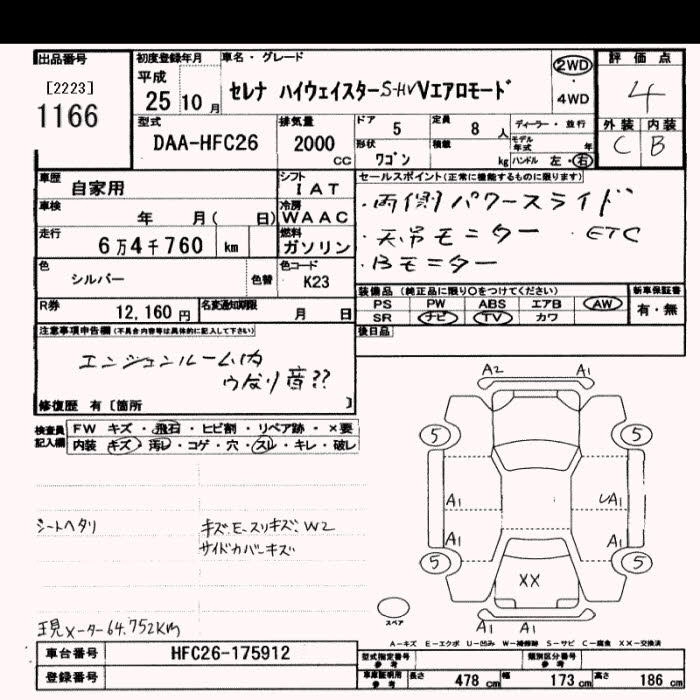 出品番号
[2223]
1166
初度登録年月
平成
25 10 月
車名・グレード
セレナ ハイウェイスターS-HV Vエアロモード
2WD
4WD
評価点
4
外装 内装
C B
型式
DAA-HFC26
排気量
2000
cc
ドア 5
定員 8 人
ディーラー・並行
形状 ワゴン
積載 kg
モデル年式 年
ハンドル 左・右
車歴
自家用
シフト
I A T
車検
年 月( 日)
冷房
WAAC
走行
6万4千760 km
燃料
ガソリン
色
シルバー
色替
色コード
K23
R券
12,160円
名変通知期限
月 日
セールスポイント(正常に機能するものに限ります)
・両側パワースライド
・天吊モニター ・ETC
・Bモニター
装備品 (純正品に限り○をつけてください)
PS PW ABS エアB AW
SR ナビ TV カワ
新車保証書
有・無
後日品
注意事項申告欄(不具合内容等は具体的に記入して下さい)
エンジェンルーム内
ウなり音??
修復歴 有 [箇所 ]
検査員
記入欄
FW キズ・飛石・ヒビ割・リペア跡・×要
内装 キズ・汚レ・コゲ・穴・スレ・キレ・破レ
シートヘタリ
キズ.E.スリキズ.W2
サイドカバーキズ
現メーター64.752KM
A2 A1
5 5
A1 A1
A1 A1
5 5
XX
A1 A1
スペア
A-キズ E-エクボ U-凹み W-補修跡 S-サビ C-腐食 XX-交換済
車台番号
HFC26-175912
登録番号
型式指定番号
参考
類別区分番号
参考
車庫証明用
参考
長さ 478 cm
幅 173 cm
高さ 186 cm